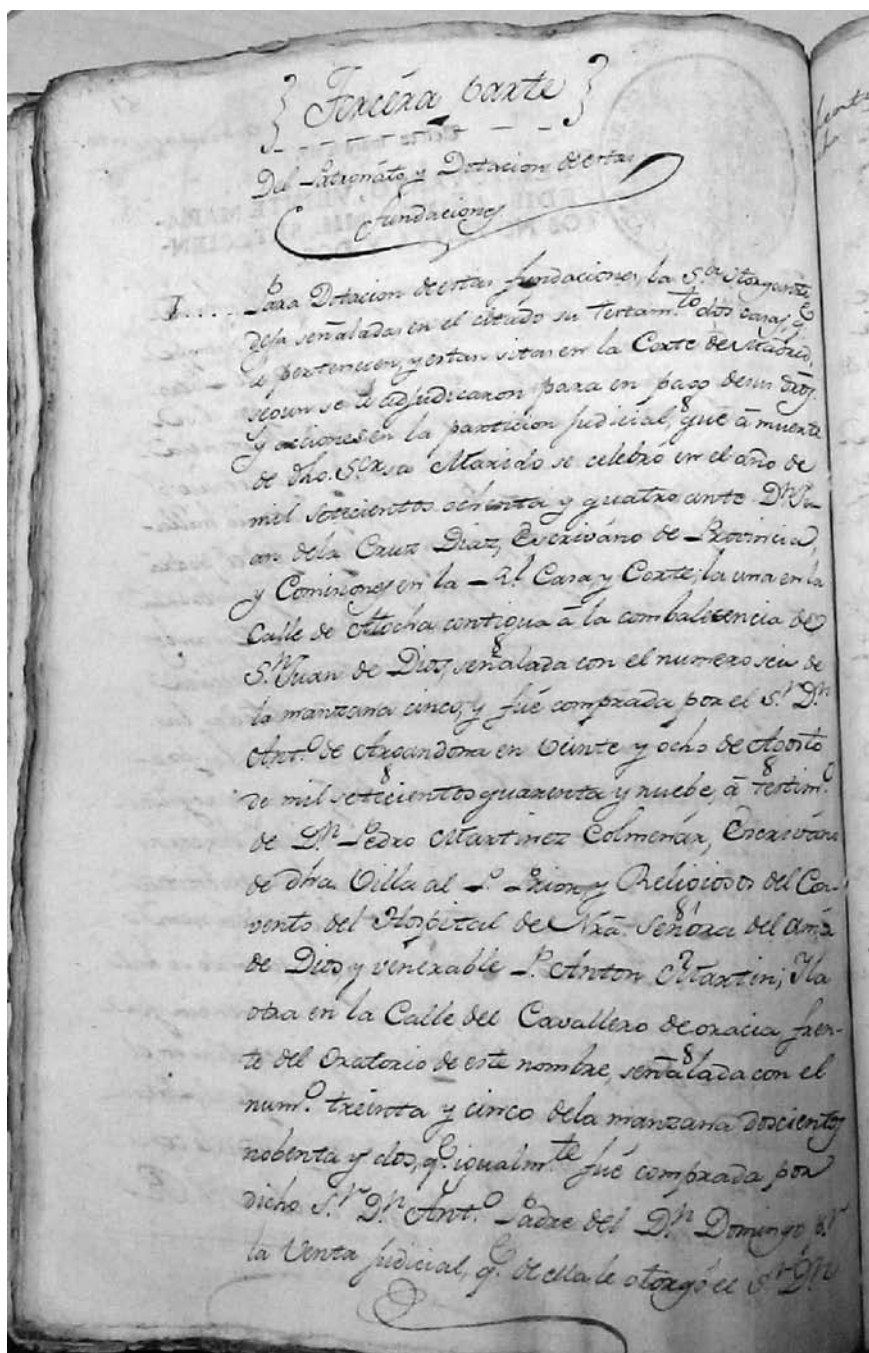 Tercéra parte
Del Patronáto, y Dotacion de estas
fundaciones
I.... Para Dotacion de estas fundaciones, la S.ra Otorgante
deja señaladas en el citado su Testam.to dos casas, q.e
le pertenecen, y estan sitas en la Corte de Madrid,
segun se le adjudicaron para en pago de sus dros.
y acciones en la particion judicial, que â muerte
de dho. S.or su Marido se celebró en el año de
mil setecientos ochenta y quatro ante D.n Ju-
an dela Cruz Diaz, Escriváno de Provincia,
y Comisiones en la R.l Casa, y Corte; la una en la
Calle de Atocha contigua â la combalecencia de
S.n Juan de Dios, señalada con el numero seis de
la manzana cinco, y fué comprada por el S.r D.n
Ant.o de Argandona en veinte y ocho de Agosto
de mil setecientos quarenta y nuebe, â testim.o
de D.n Pedro Martinez Colmenár, Escriváno
de dha. Villa al P. Prior, y Religiosos del Con-
vento del Hospital de Nrâ. Señora del Amór
de Dios y vénerable P. Anton Martin; Y la
otra en la Calle del Cavallero de gracia fren-
te del Oratorio de este nombre, señalada con el
num.o treinta y cinco dela manzana doscientos
nobenta y dos, q.e igualm.te fué comprada por
dicho S.r D.n Ant.o Padre del D.n Domingo p.r
la Venta judicial, q.e de ella le otorgó el S.r D.n